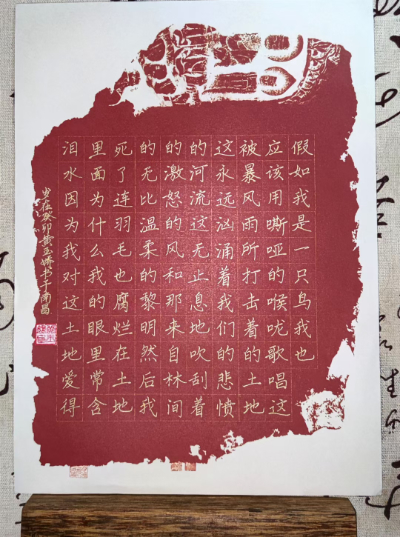 假如我是一只鸟我也
应该用嘶哑的喉咙歌唱这
被暴风雨所打击着的土地
这永远汹涌着我们的悲愤
的河流这无止息地吹刮着
的激怒的风和那来自林间
的无比温柔的黎明然后我
死了连羽毛也腐烂在土地
里面为什么我的眼里常含
泪水因为我对这土地爱得
岁在癸卯黄玉书于南昌